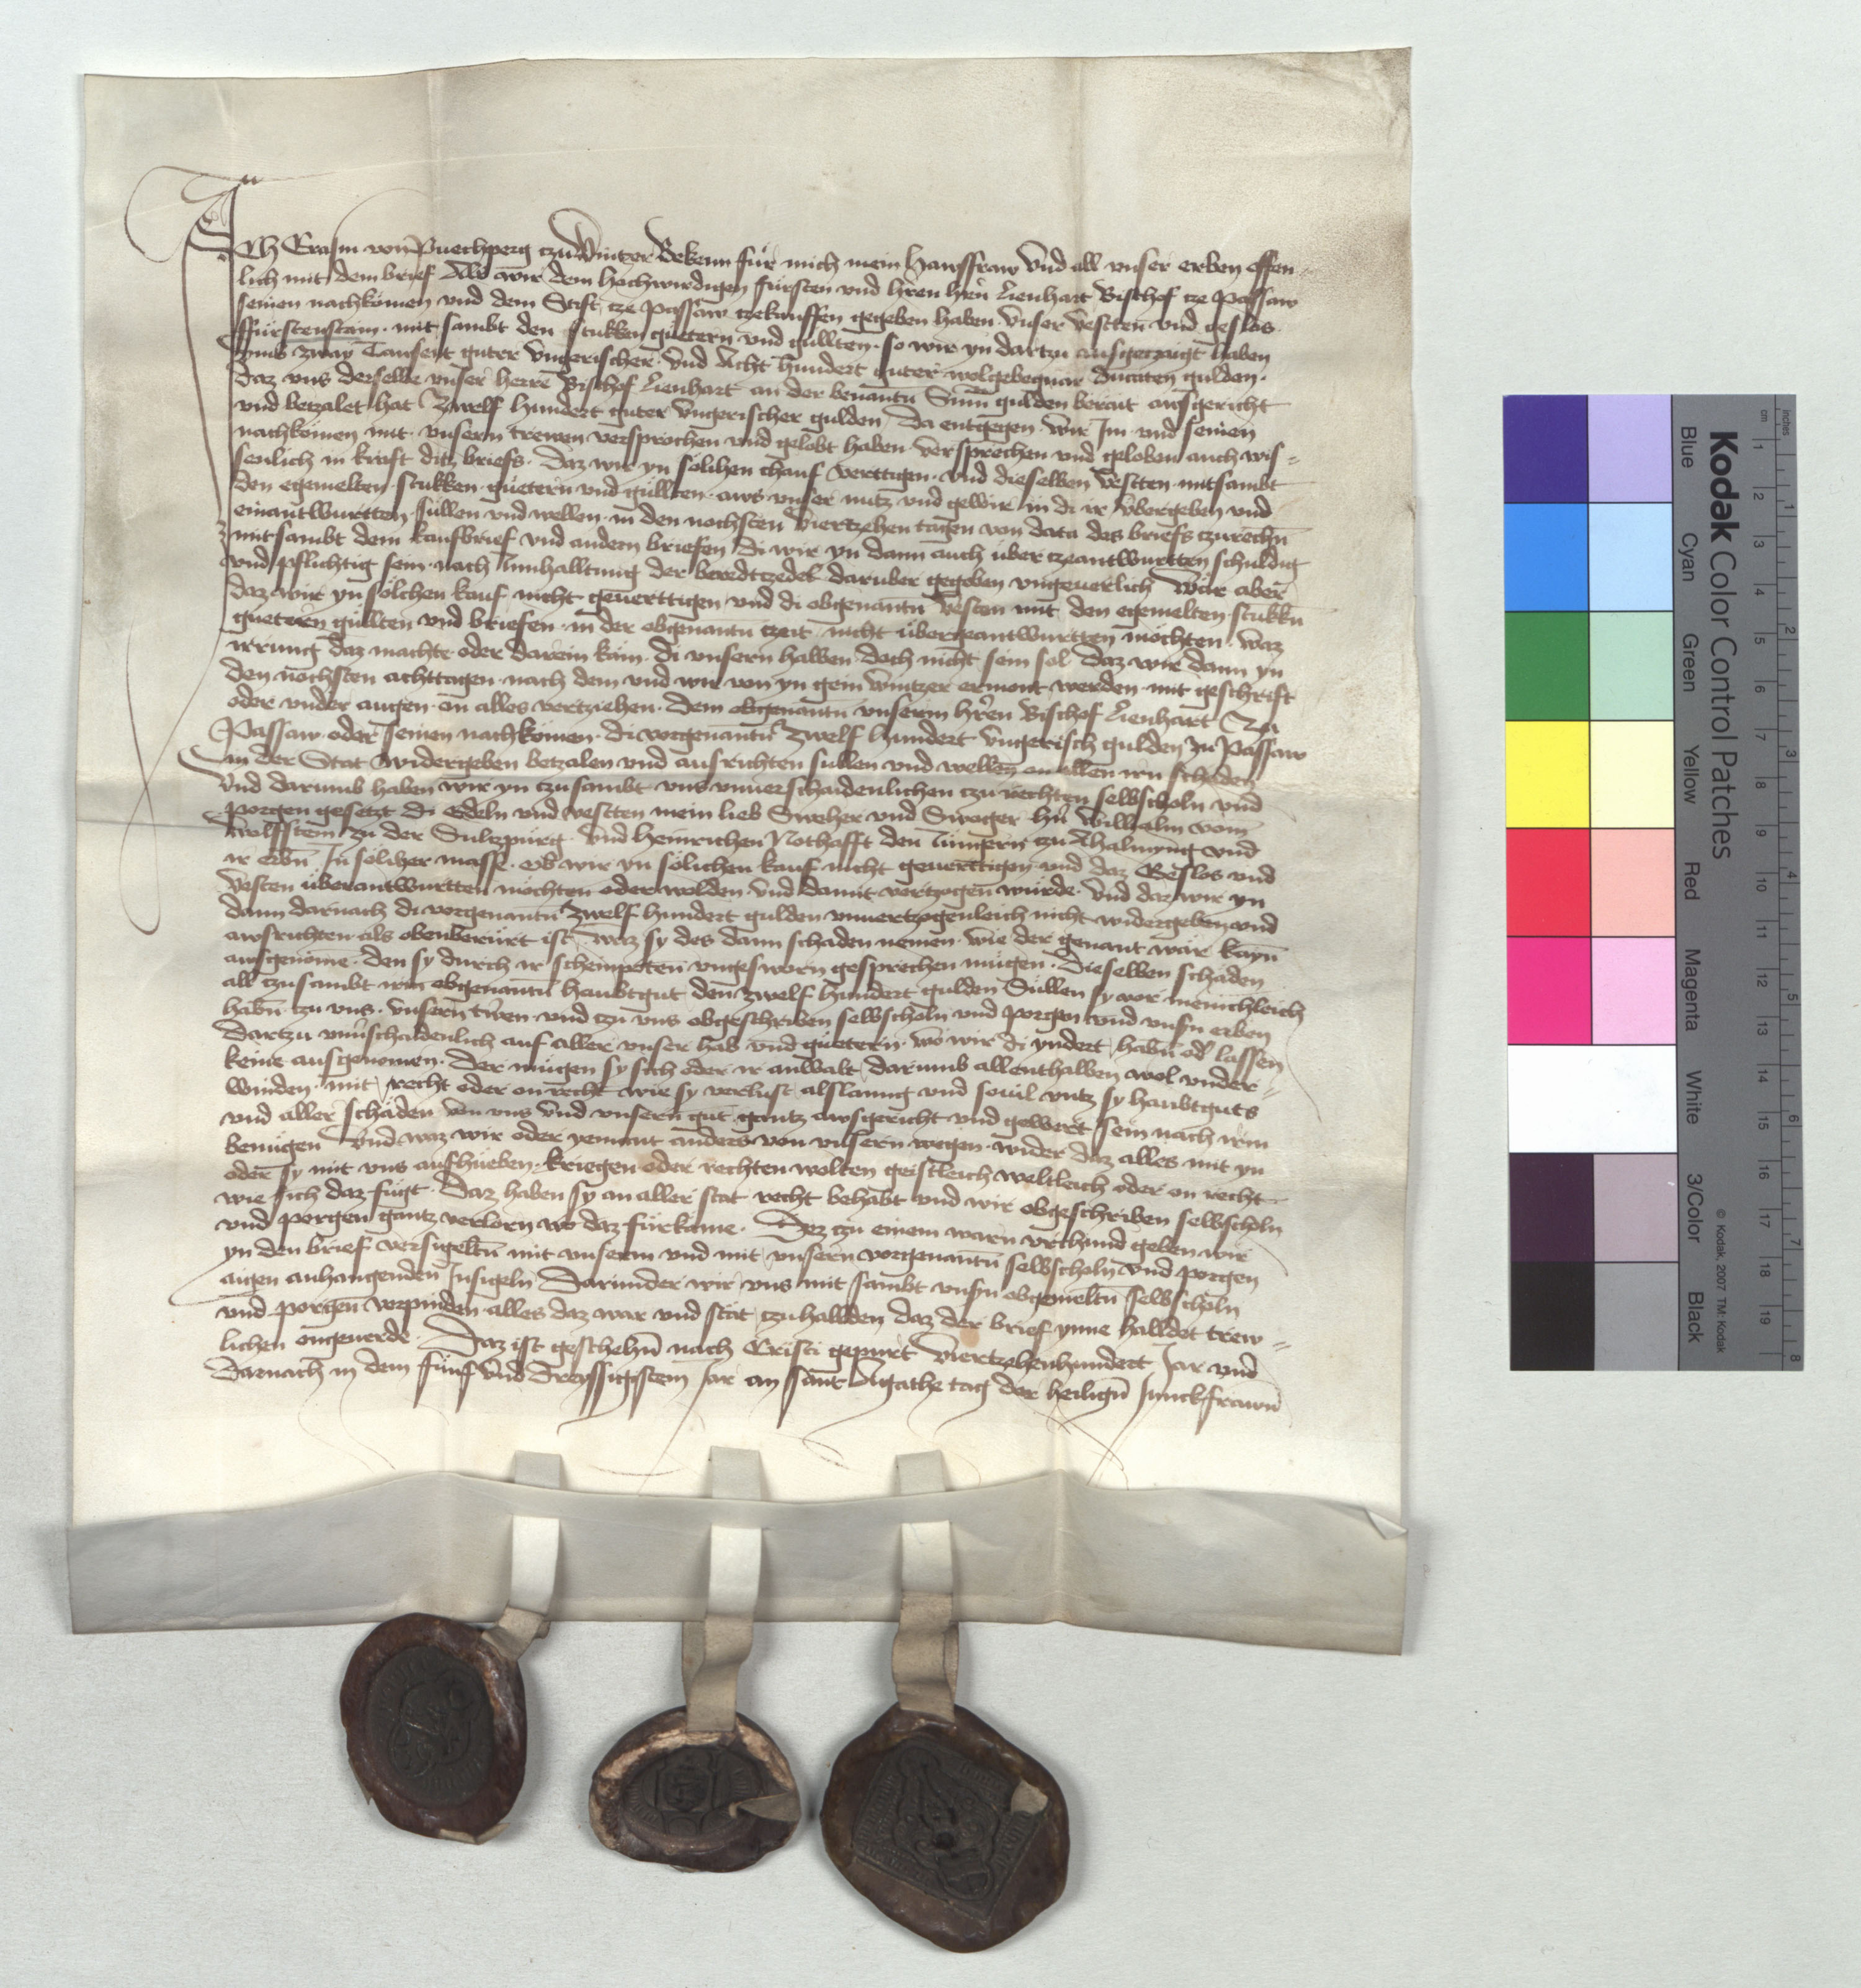 Ich Erasm von Puechperg czu Winczer Bekenn für mich mein hawsfraw vnd all vnser erben offen
lich mit dem brief Als wir dem hochwirdigen fürsten vnd hrēn hrēn Lienhart Bischof cze Passaw
seinen nachkomen vnd dem Stift cze Passaw czekauffen gegeben haben vnser Vestten vnd geslos
ffürstenstain mit sambt den stukken guetern vnd gullten so wir yn dartzu ausgeczaigt haben
vmb zway Tausent guter vngerischer vnd Acht hundert guter wolgebegner ducaten gulden
daz vns derselbe vnser herre Bischof Lienhart an der benantn Sum gulden berait ausgericht
vnd betzalet hat Zwelf hundert guter vngerischer gulden Da entgegen wir Im vnd seinen
nachkomen mit vnsern trewen versprochen vnd gelobt haben versprechen vnd geloben auch wis=
senlich in kraft ditz briefs Daz wir yn solihen chauf verttigen vnd dieselben Vestten mitsambt
den egemelten stukken guetern vnd gullten aws vnser nutz vnd gewer in di ir vbergeben vnd
einantwurtten sullen vnd wellen in den nechsten Viertzehen tagen von data des briefs czurechn
mitsambt dem kaufbrief vnd andern briefen di wir yn dann auch über czeantwurtten schuldig
vnd pflichtig sein nach Innhalltung der beredtczedel daruber gegeben vngeuerlich Wär aber
daz wir yn solchen kauf nicht geuerttigen vnd di obgenantn Vesten mit den egemelten stukkn
guetern gullten vnd briefen in der obgenantn czeit nicht überczeantwurtten möchten waz
irrung daz machte oder darein käm di vnsern halben doch nicht sein sol daz wir dann yn
den nechsten achttagen nach dem vnd wir von yn gein winczer ermont werden mit geschrift
oder vnder augen on alles vertziehen dem obgenantn vnserm hrēn Bischof Lienhart Zu
Passaw oder seinen nachkomen di vorgenantn Zwelf hundert vngerisch gulden zu Passaw
in der Stat widergeben betzalen vnd ausrichten sullen vnd wellen on allen irn schaden
Vnd darumb haben wir yn czusambt vns vnuerschaidenlichen czu rechten selbscholn vnd
porgen gesetzt di edeln vnd vestten mein lieb Sweher vnd Swager hn Wilhalm vom
Wolfstein zu der Sultzpurg vnd heinrichen Nothafft den Jungern czu Thalmyng vnd
ir erbn In solicher masse ob wir yn solichen kauf nicht geuerttigen vnd daz Geslos vnd
Vesten überantwurtten mochten oder wolden vnd damit vertzogen würde vnd daz wir yn
dann darnach di vorgenantn Zwelf hundert gulden vnuertzogenleich nicht widergeben vnd
ausrichten als obenberürt ist waz sy des dann schaden nemen wie der genant wär kayn
ausgenome den sy durch ir scheinpoten vngesworn gesprechen mugen Dieselben schaden
all czusambt irm obgenantn haubtgut den zwelf hundert gulden Sullen sy vor menichleich
habn czu vns vnsern trwen vnd czu vns obgeschriben selbscholn vnd porgen vnd vnsn erben
dartzu vnuschaidenlich auf aller vnser hab vnd guetern wo wir di yndert habn od lassen
keine ausgenomen Der mugen sy sich oder ir anwalt darumb allenthalben wol vnder=
winden mit recht oder on recht wie sy verlust alslanng vnd souil vntz sy haubtguts
vnd aller schäden von vns vnd vnsern gut gantz ausgericht vnd gewert sein nach irm
benugen vnd waz wir oder yemant anders von vnsern wegen wider daz alles mit yn
oder sy mit vns aufhueben kriegen oder rechten wolten geistleich weltleich oder on recht
wie sich daz fügt Daz haben sy an aller stat recht behabt vnd wir obgeschriben selbscholn
vnd porgen gantz verlorn wo daz fürkäme Dez czu einem warn vrchund geben wir
yn den brief versigeltn mit vnserm vnd mit vnsern vorgenantn selbscholn vnd porgen
aigen anhangenden Insigeln Darunder wir vns mit sambt vnsyn obgemeltn selbscholn
vnd porgen verpinden alles daz war vnd stät czuhallden daz der brief ynne halldet trew=
lichen ongeuerde Daz ist geschehn nach Cristi gepurt Viertzehenhundert Jar vnd
darnach in dem fünf vnd dreyssigistem Jar an sant Agathe tag der heilign Junckfrawn
Kodak Color Control Patches
Blue Cyan Green Yellow Red Magenta White 3/Color Black
© Kodak, 2007 TM: Kodak
cm 1 2 3 4 5 6 7 8 9 10 11 12 13 14 15 16 17 18 19
inches 1 2 3 4 5 6 7 8